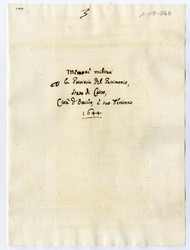 3
Memorie militari
La Provincia del Patrimonio,
Stato di Castro,
Città d'Orvieto, e suo Territorio
1644